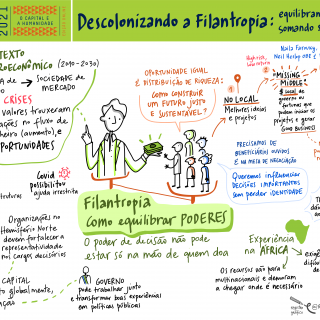 2021
O CAPITAL E
A HUMANIDADE
Descolonizando a Filantropia: equilibran
somando s
TEXTO
ROECONÔMICO (2010-2030)
A DE → SOCIEDADE DE
MERCADO
CRISES
VALORES TROUXERAM
AÇÕES NO FLUXO DE
HEIRO (AUMENTO), E
PORTUNIDADES
Covid
possibilitou
ajuda irrestrita
TRUTURAS
ORGANIZAÇÕES NO
HEMISFÉRIO NORTE
DEVEM FORTALECER A
REPRESENTATIVIDADE
NOS CARGOS DECISÓRIOS
CAPITAL
GLOBALMENTE,
OPORTUNIDADE IGUAL
E DISTRIBUIÇÃO DE RIQUEZA:
COMO CONSTRUIR
UM FUTURO JUSTO
E SUSTENTÁVEL?
NO LOCAL
Melhores ideias
e projetos
"MISSING
MIDDLE":
PRECISAMOS DE
BENEFICIÁRIOS OUVIDOS
E NA MESA DE NEGOCIAÇÃO
Queremos influenciar
DECISÕES IMPORTANTES
sem perder IDENTIDADE
Filantropia
COMO EQUILIBRAR PODERES
O PODER DE DECISÃO NÃO PODE
ESTAR SÓ NA MÃO DE QUEM DOA
GOVERNO
PODE TRABALHAR JUNTO
E TRANSFORMAR BOAS EXPERIÊNCIAS
EM POLÍTICAS PÚBLICAS
Experiência
na ÁFRICA
OS RECURSOS VÃO PARA
MULTINACIONAIS E DEMORAM
A CHEGAR ONDE É NECESSÁRIO